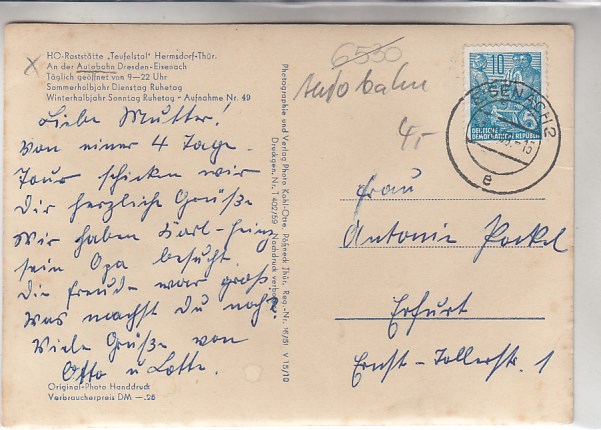 HO-Raststätte „Teufelstal" Hermsdorf-Thür.
An der Autobahn Dresden-Eisenach
Täglich geöffnet von 9—22 Uhr
Sommerhalbjahr Dienstag Ruhetag
Winterhalbjahr Sonntag Ruhetag - Aufnahme Nr. 49
Liebe Mutter!
Von einer 4 Tage-
Tour schicken wir
Dir herzliche Grüße
Wir haben Karl-Heinz
sein Opa besucht
die Freude war groß.
Was machst Du noch?
Viele Grüße von
Otto u. Lotte.
Original-Photo Handdruck
Verbraucherpreis DM —.25
Photographie und Verlag Photo Kahl-Otre, Pößneck Thür. Reg.-Nr.
Druckgen. Nr. T 402/59 Nachdruck verboten
V 15/10
6530
Autobahn
4,-
10
5
DEUTSCHE
DEMOKRATISCHE REPUBLIK
EISENACH 2
e
Frau
Antonie Pockel
Erfurt
Ernst-Tollerstr. 1